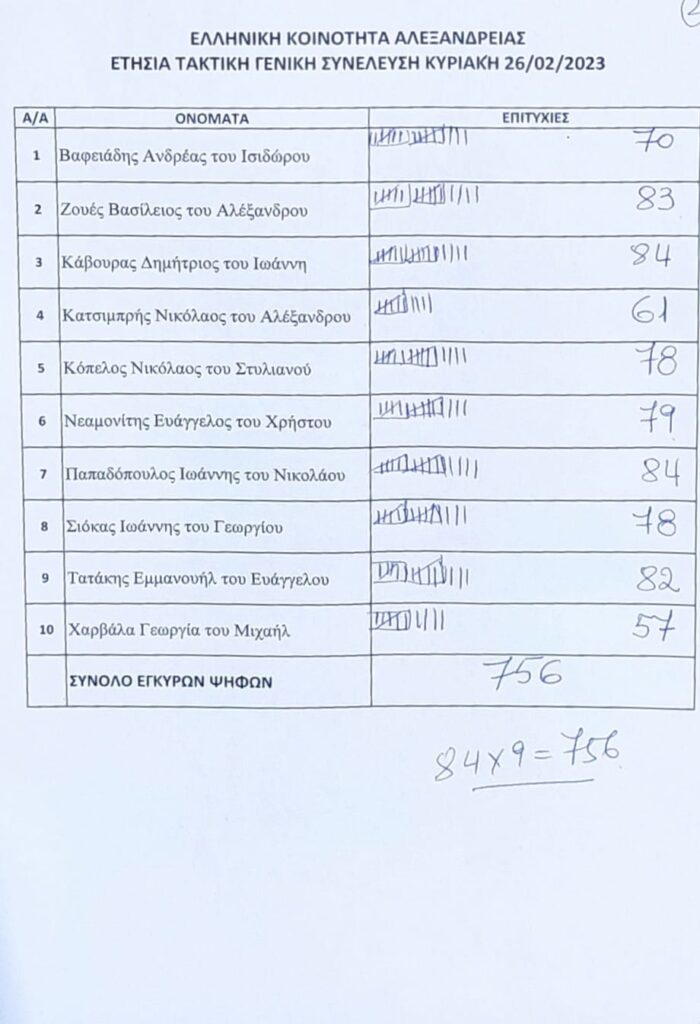 2
ΕΛΛΗΝΙΚΗ ΚΟΙΝΟΤΗΤΑ ΑΛΕΞΑΝΔΡΕΙΑΣ
ΕΤΗΣΙΑ ΤΑΚΤΙΚΗ ΓΕΝΙΚΗ ΣΥΝΕΛΕΥΣΗ ΚΥΡΙΑΚΉ 26/02/2023
Α/Α ΟΝΟΜΑΤΑ ΕΠΙΤΥΧΙΕΣ
1 Βαφειάδης Ανδρέας του Ισιδώρου 70
2 Ζουές Βασίλειος του Αλέξανδρου 83
3 Κάβουρας Δημήτριος του Ιωάννη 84
4 Κατσιμπρής Νικόλαος του Αλέξανδρου 61
5 Κόπελος Νικόλαος του Στυλιανού 78
6 Νεαμονίτης Ευάγγελος του Χρήστου 79
7 Παπαδόπουλος Ιωάννης του Νικολάου 84
8 Σιόκας Ιωάννης του Γεωργίου 78
9 Τατάκης Εμμανουήλ του Ευάγγελου 82
10 Χαρβάλα Γεωργία του Μιχαήλ 57
ΣΥΝΟΛΟ ΕΓΚΥΡΩΝ ΨΗΦΩΝ 756
84x9=756